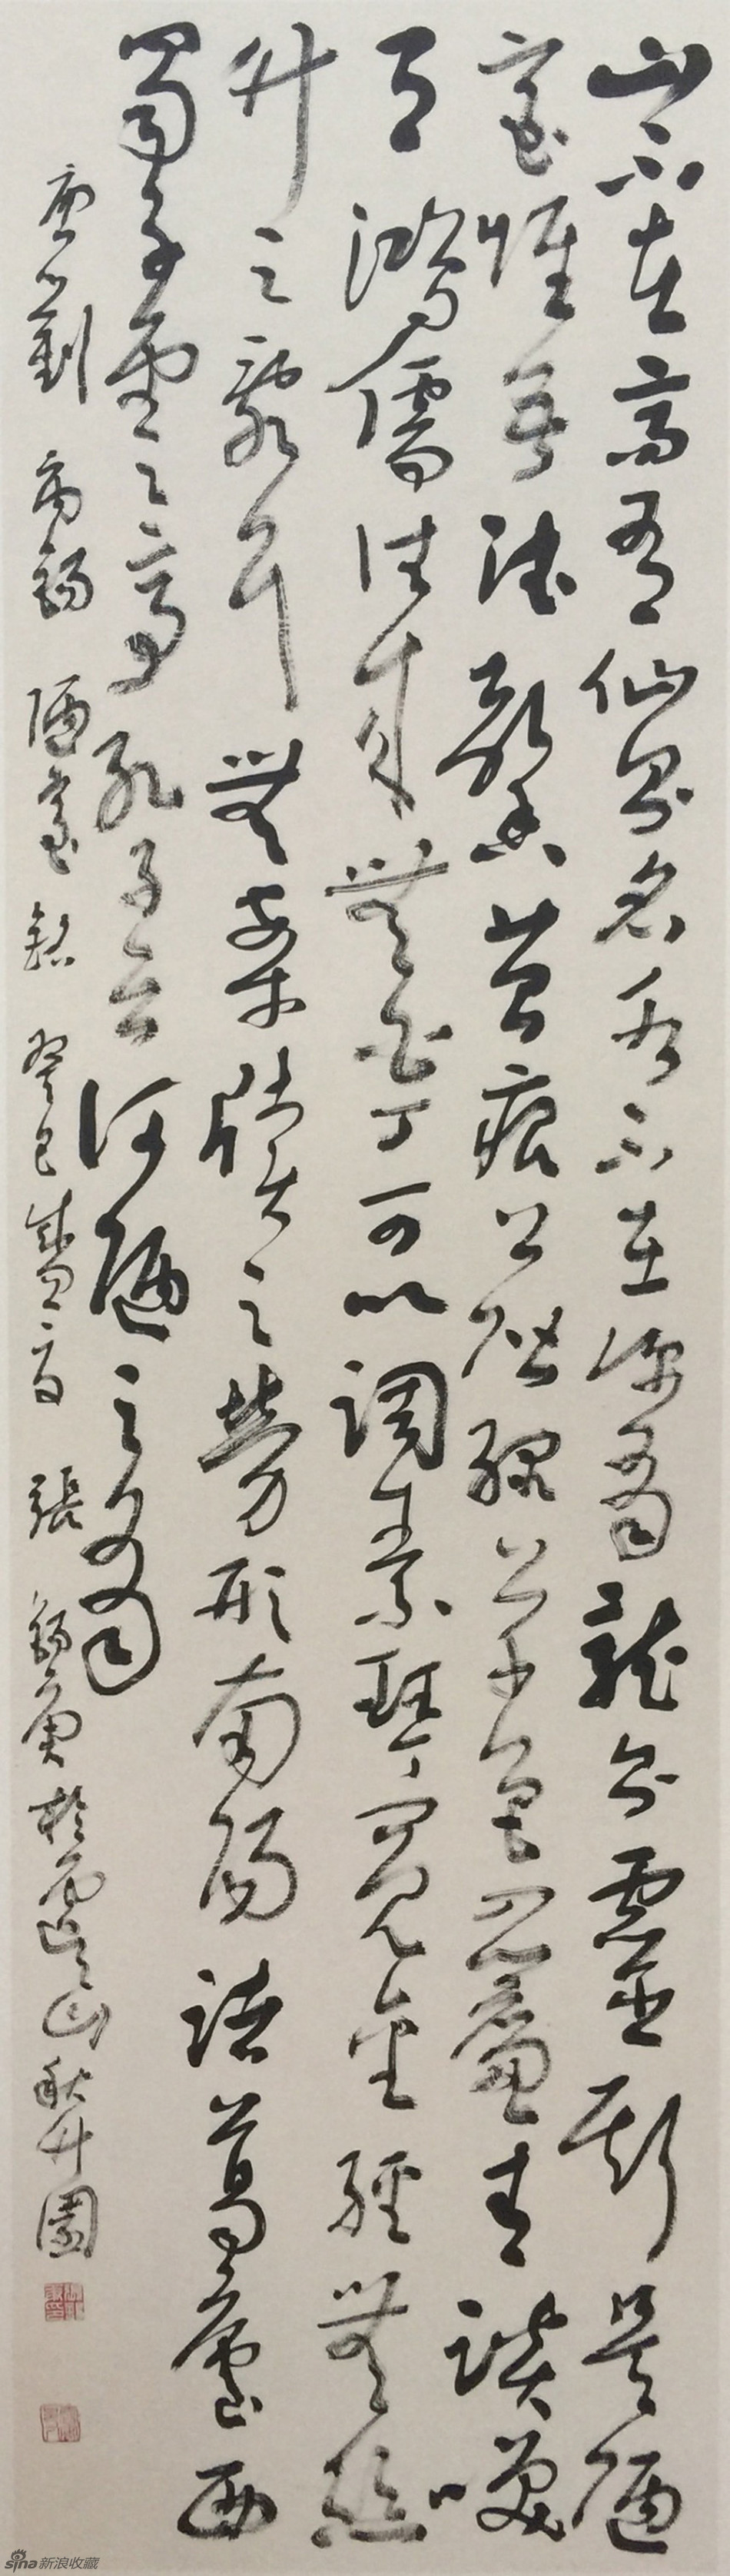 山不在高有仙則名水不在深有龍則靈斯是陋
室惟吾德馨苔痕上階緑草色入簾青談笑
有鴻儒往來無白丁可以調素琴閱金經無絲
竹之亂耳無案牘之勞形南陽諸葛廬西
蜀子雲之亭孔子云何陋之有
唐劉禹錫陋室銘癸巳盛夏張錫庚於虞山秋園
sina新浪收藏